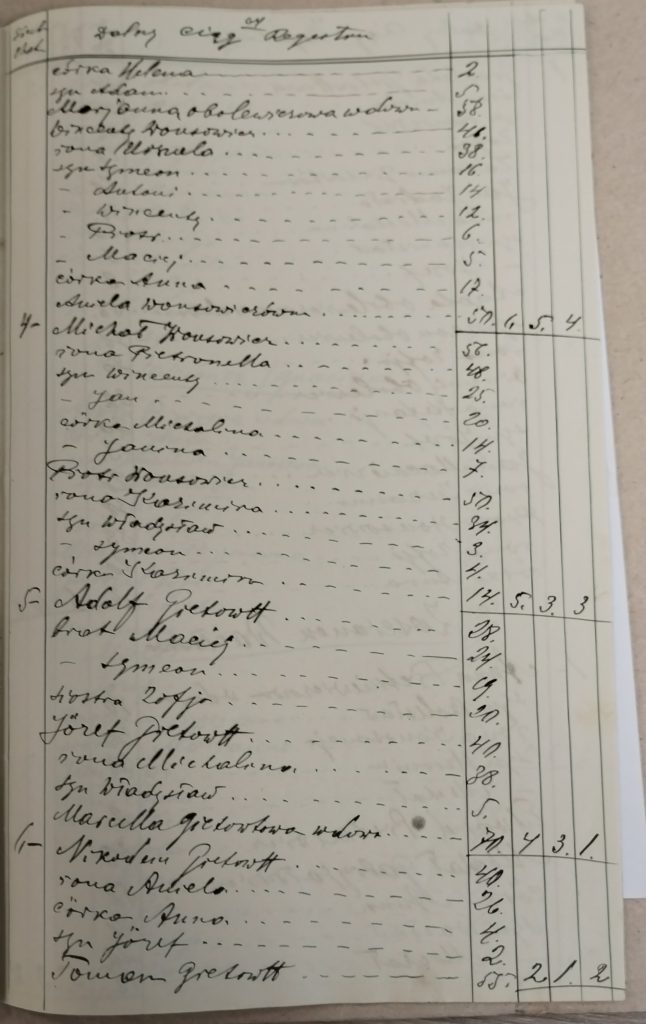 Dalszy ciąg Regestru
córka Helena 2.
syn Adam 5.
Marjanna Obolewiczowa wdowa 58.
Wincenty Wonsowicz 46.
żona Urszula 38.
syn Symeon 16
- Antoni 14
- Wincenty 12.
- Piotr 6.
- Maciej 5.
córka Anna 17.
Aniela Wonsowiczówna 50. 6. 5. 4.
4- Michał Wonsowicz 56.
żona Pietronella 48.
syn Wincenty 25.
- Jan 20.
córka Michalina 14.
- Janina 7.
Piotr Wonsowicz 50.
żona Kazimira 34.
syn Władysław 3.
- Symeon 4.
córka Kazimira 14. 5. 3. 3
5- Adolf Gietowtt 28.
brat Maciej 24.
- Symeon 19.
siostra Zofja 20.
Józef Gietowtt 40.
żona Michalina 38.
syn Władysław 5.
Marcella Gietowtowa wdowa 70. 4 3. 1.
6- Nikodem Gietowtt 40.
żona Aniela 26.
córka Anna 4.
syn Józef 2.
Toman Gietowtt 55. 2. 1. 2